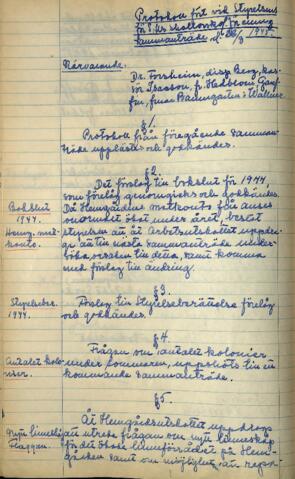 Protokoll fört vid Styrelsens
för S:t förening
sammanträde d. 26/3 1945.
Närvarande:
Dr. Forsheim, disp. Berg, kas-
sör Isacson, fr. Hedblom,
fruar Baumgarten o. Wallner.
§1.
Protokoll från föregående samman-
träde upplästes och godkändes.
§2.
Bokslut
1944.
Hemg. mat-
konto.
Det förslag till bokslut för 1944,
som förelåg genomgicks och godkändes.
Då Hemgårdens matkonto får anses
onormalt ökat under året, beslöt
styrelsen att åt Arbetsutskottet uppdra-
ga att till nästa sammanträde under-
söka orsaken till detta, samt komma
med förslag till ändring.
§3.
Styrelseber.
1944.
Förslag till Styrelseberättelse förelåg
och godkändes.
§4.
Antalet kolo-
nier.
Frågan om antalet kolonier
under sommaren, uppsköts till
kommande sammanträde.
§5.
Nytt linneskåp
Flaggan.
Åt Hemgårdsutskottet uppdrogs
att utreda frågan om nytt linneskåp
för det ökade linneförrådet på Hem-
gården samt om möjligheten att repa-